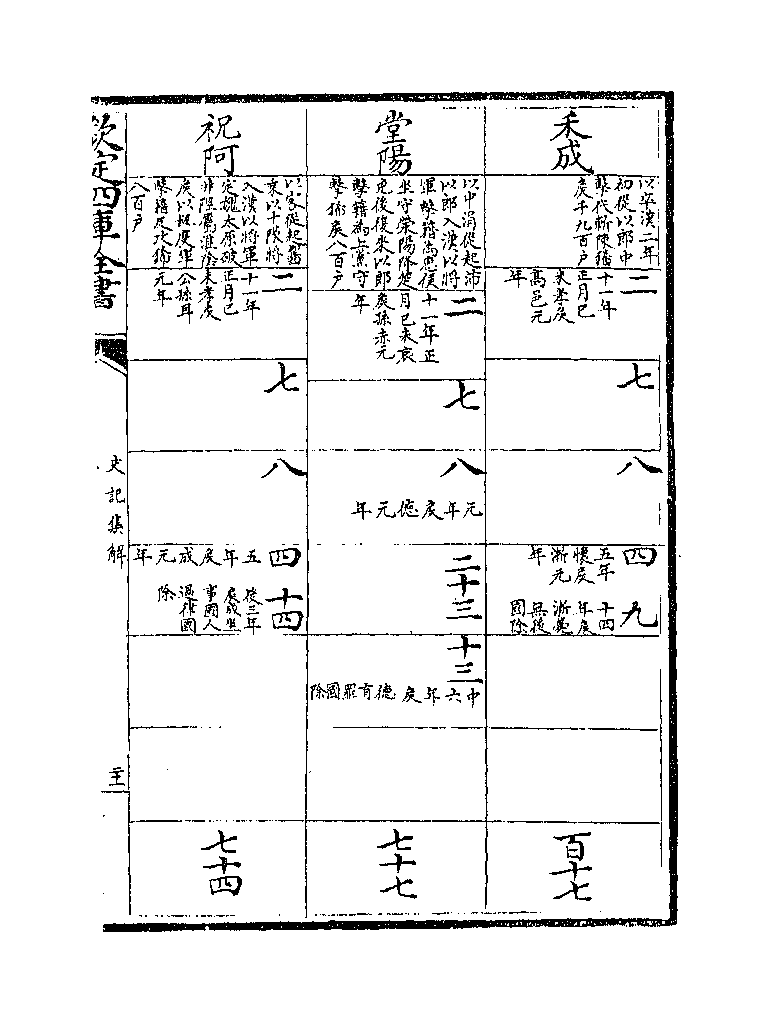 禾成
以卒漢二年
初從以郎中
擊代斬陳豨
侯千九百户
二
十一年
正月已
未孝侯
公孫耳
元年
七
八
四
五年
懷侯
漸元
年
九
十四
年侯
漸薨
無後
國除
百十七
堂陽
以中涓從起沛
以郎入漢以將
軍擊籍為惠侯
坐守滎陽降楚
免後復來以郎
擊籍為上黨守
擊豨侯八百户
二
十一年正
月已未哀
侯孫赤元
年
七
八
元年侯德元年
二十三
十三
中六年侯德有罪國除
七十七
祝阿
入漢以將軍
定魏太原破
八百户
二
十一年
正月已
未孝侯
七
八
四
五年侯成元年
十四
後三年
侯成坐
事國人
過律國
除
七十四
欽定四庫全書
史記集解